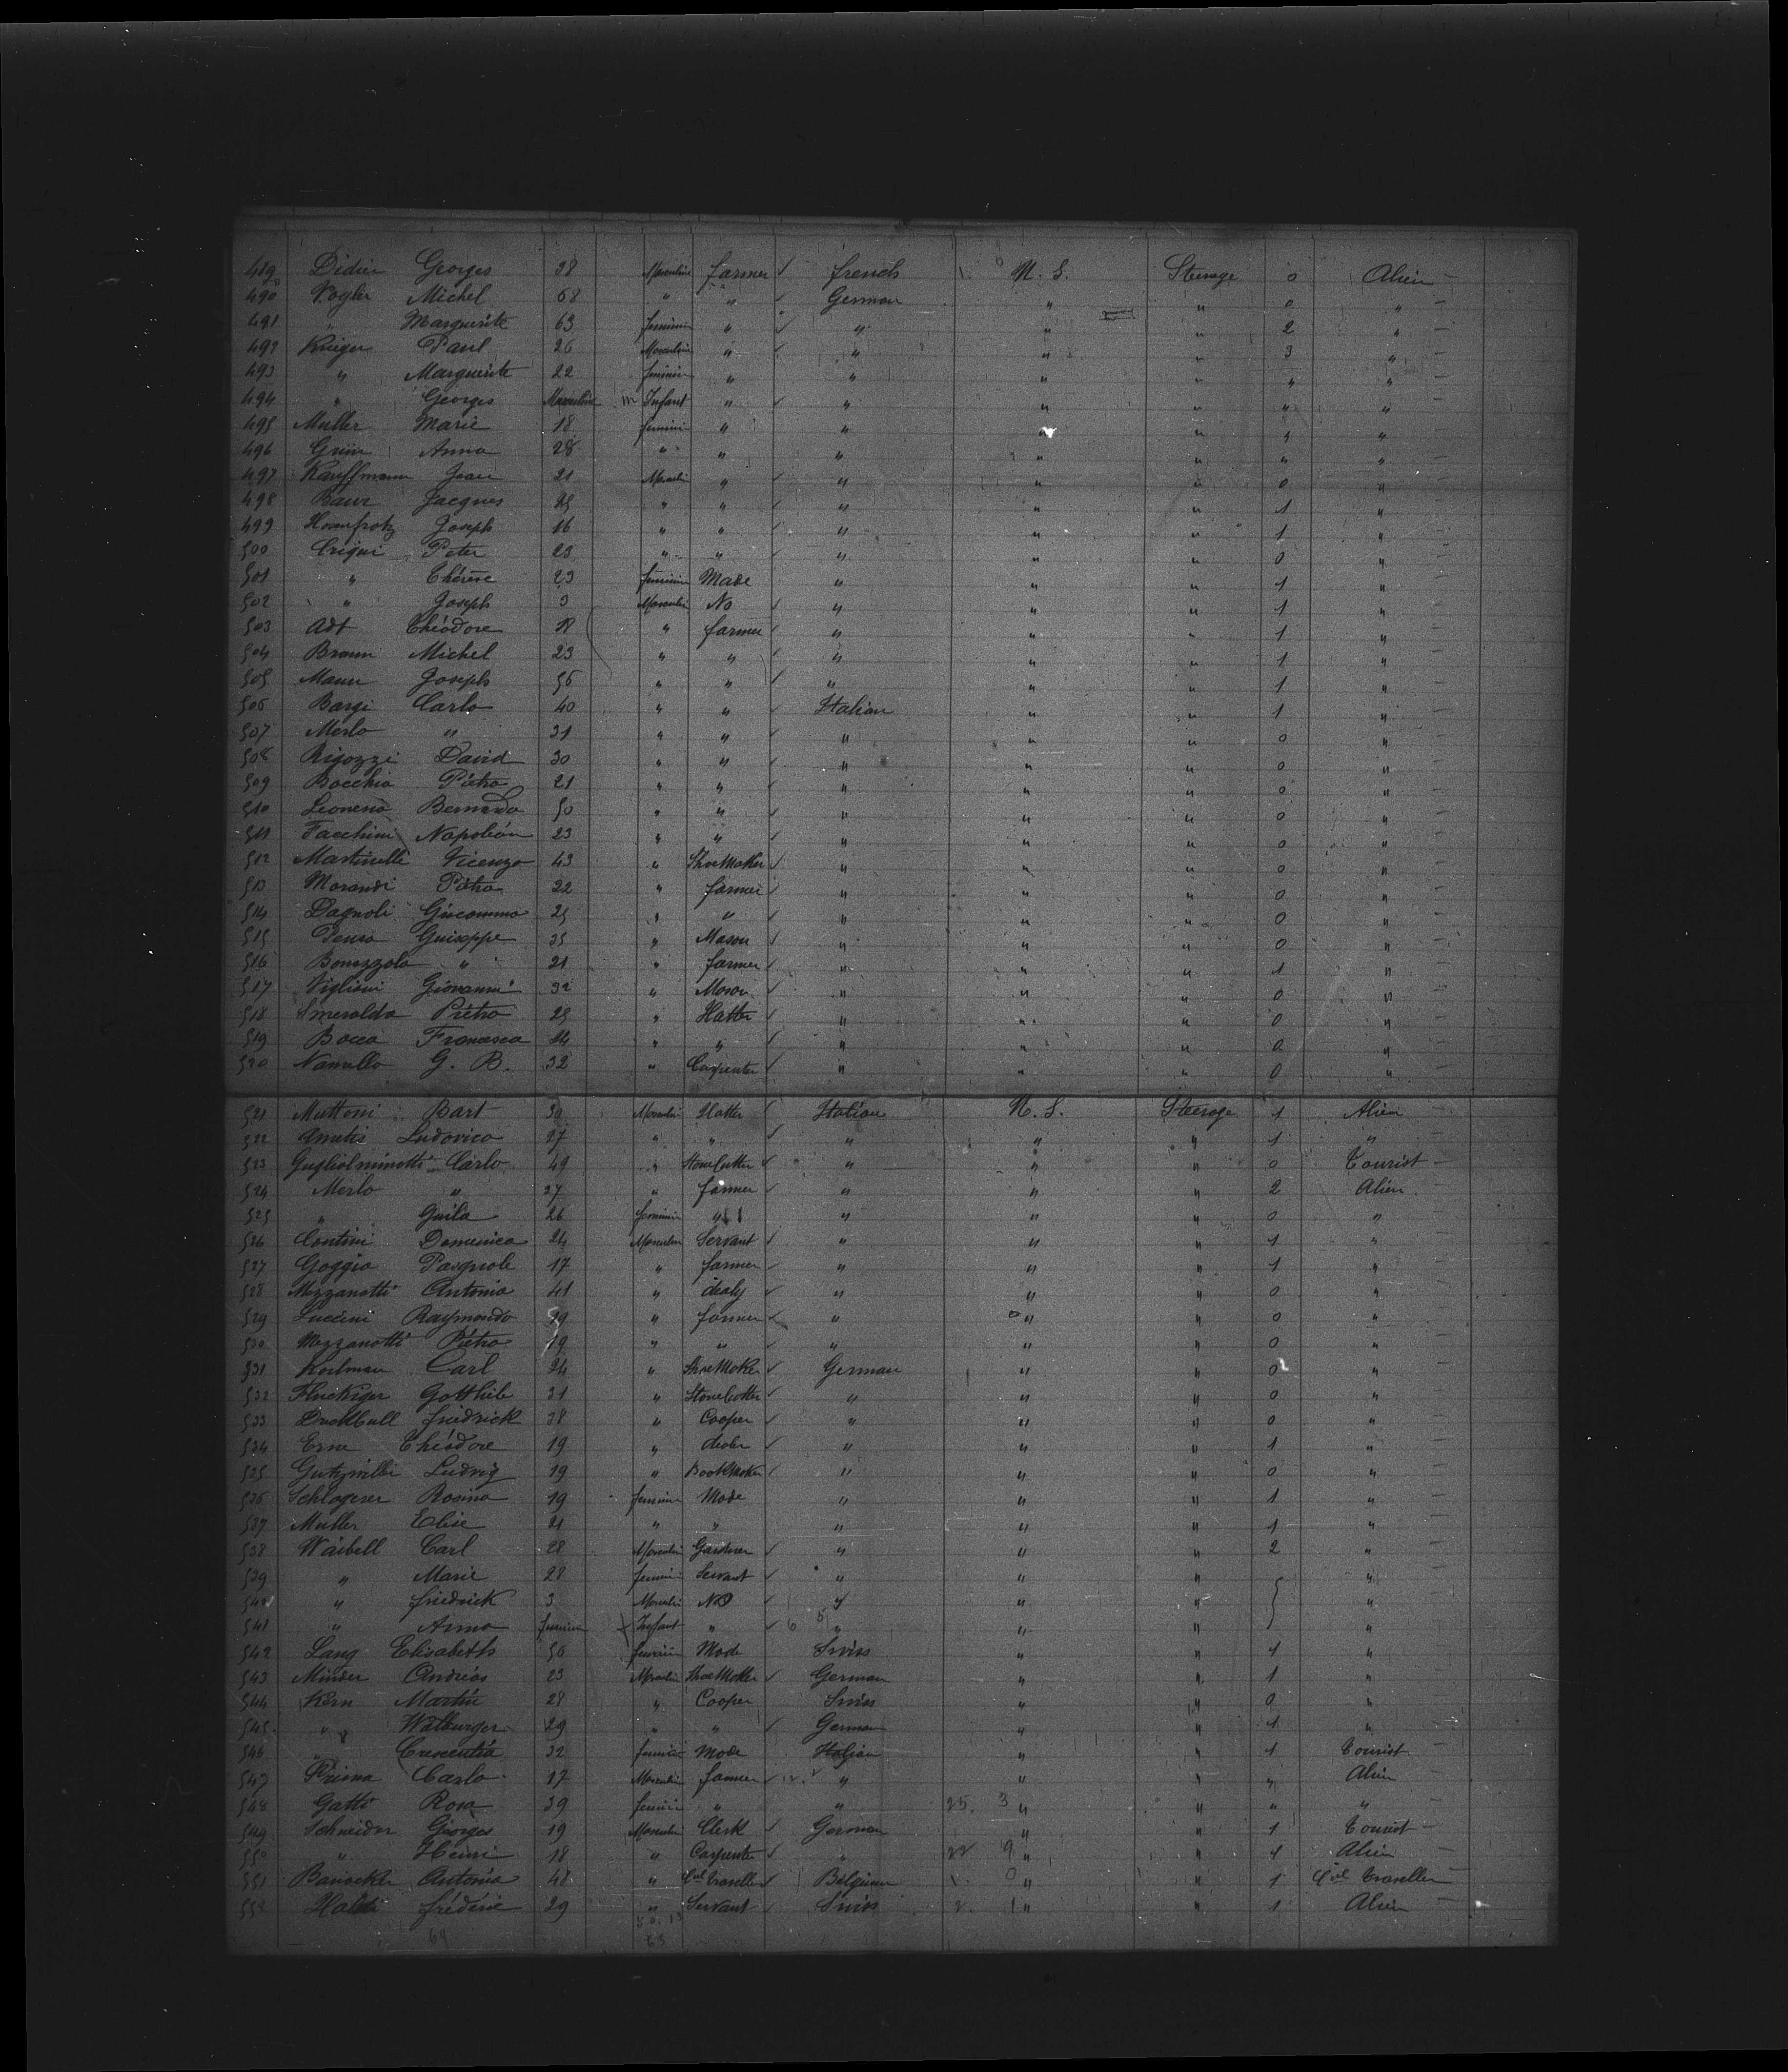 489 Didier Georges 38 Masculin farmer french U. S. Steerage 0 Alien
490 Vogler Michel 68 " " German " " 0 "
491 " Marguerite 63 feminin " " " " 2 "
492 Krieger Paul 26 Masculin " " " " 3 "
493 " Marguerite 22 feminin " " " " " "
494 " Georges Masculin m Infant " " " " " "
495 Muller Marie 18 feminin " " " " "
496 Grün Anna 28 " " " " " " "
497 Kauffmann Jean 21 Masculin " " " " 0 "
498 Baur Jacques 25 " " " " " 1 "
499 Joseph 16 " " " " " 1 "
500 Criqui Peter 23 " " " " " 0 "
501 " Thérèse 23 feminin Made " " " 1 "
502 " Joseph 3 Masculin No " " " 1 "
503 Adt Théodore " farmer " " " 1 "
504 Braun Michel 23 " " " " " 1 "
505 Maun Joseph 56 " " " " " 1 "
506 Bargi Carlo 40 " " Italian " " 1 "
507 Merlo " 31 " " " " " 0 "
508 Rigozzi David 30 " " " " " 0 "
509 Bocchia Piétro 21 " " " " " 0 "
510 Bernardo 50 " " " " " 0 "
511 Facchini Napoléon 23 " " " " " 0 "
512 Martinelli Vicenzo 43 " ShoeMaker " " " 0 "
513 Morandi Piétro 22 " farmer " " " 0 "
514 Dagnoli Giacommo 25 " " " " " 0 "
515 Guiseppe 35 " Mason " " " 0 "
516 Bonazzola " 21 " farmer " " " 1 "
517 Vigliani Giovanni 32 " Mason " " " 0 "
518 Smeralda Piétro 25 " Hatter " " " 0 "
519 Bocca Francesca 24 " " " " " 0 "
520 Nanullo G. B. 32 " Carpenter " " " 0 "
521 Muttoni Bart 30 Masculin Hatter Italian U. S. Steerage 1 Alien
522 Ludovico 27 " " " " " 1 "
523 Guglielminotti Carlo 49 " StoneCutter " " " 0 Tourist
524 Merlo " 27 " farmer " " " 2 Alien
525 " Guila 26 feminin " " " " 0 "
526 Contini Domenico 24 Masculin Servant " " " 1 "
527 Goggia Pasquale 17 " farmer " " " 1 "
528 Mezzanotti Antonio 41 " " " " 0 "
529 Luccini Raymondo " farmer " " " 0 "
530 Mezzanotti Piétro 19 " " " " " 0 "
531 Carl 24 " ShoeMaker German " " 0 "
532 Fluckiger Gottlieb 31 " StoneCutter " " " 0 "
533 friedrick 38 " Cooper " " " 0 "
534 Erne Théodore 19 " dealer " " " 1 "
535 Gutzwiller Ludvig 19 " BootMaker " " " 0 "
536 Rosina 19 feminin Made " " " 1 "
537 Muller Elise 21 " " " " " 1 "
538 Waibell Carl 28 Masculin Gardner " " " 2 "
539 " Marie 28 feminin Servant " " " "
540 " friedrick 3 Masculin No " " " "
541 " Anna feminin Infant " " " " "
542 Lang Elisabeth 56 feminin Made Swiss " " 1 "
543 Minder Andréas 23 Masculin ShoeMaker German " " 1 "
544 Kern Martin 28 " Cooper Swiss " " 0 "
545 " Walburger 29 " " German " " 1 "
546 " Crescentia 32 feminin Made Italian " " 1 Tourist
547 Prima Carlo 17 Masculin farmer " " " " Alien
548 Gatti Rosa 39 feminin " " 25. 3 " " " "
549 Schneider Georges 19 Masculin Clerk German " " 1 Tourist
550 " Henri 18 " Carpenter " 22 9 " " 1 Alien
551 Antonia 48 " Cial Traveller Belgium 1. 0 " " 1 Cial Traveller
552 Haldi frédéric 29 " Servant Swiss 2. 1 " " 1 Alien
64
63